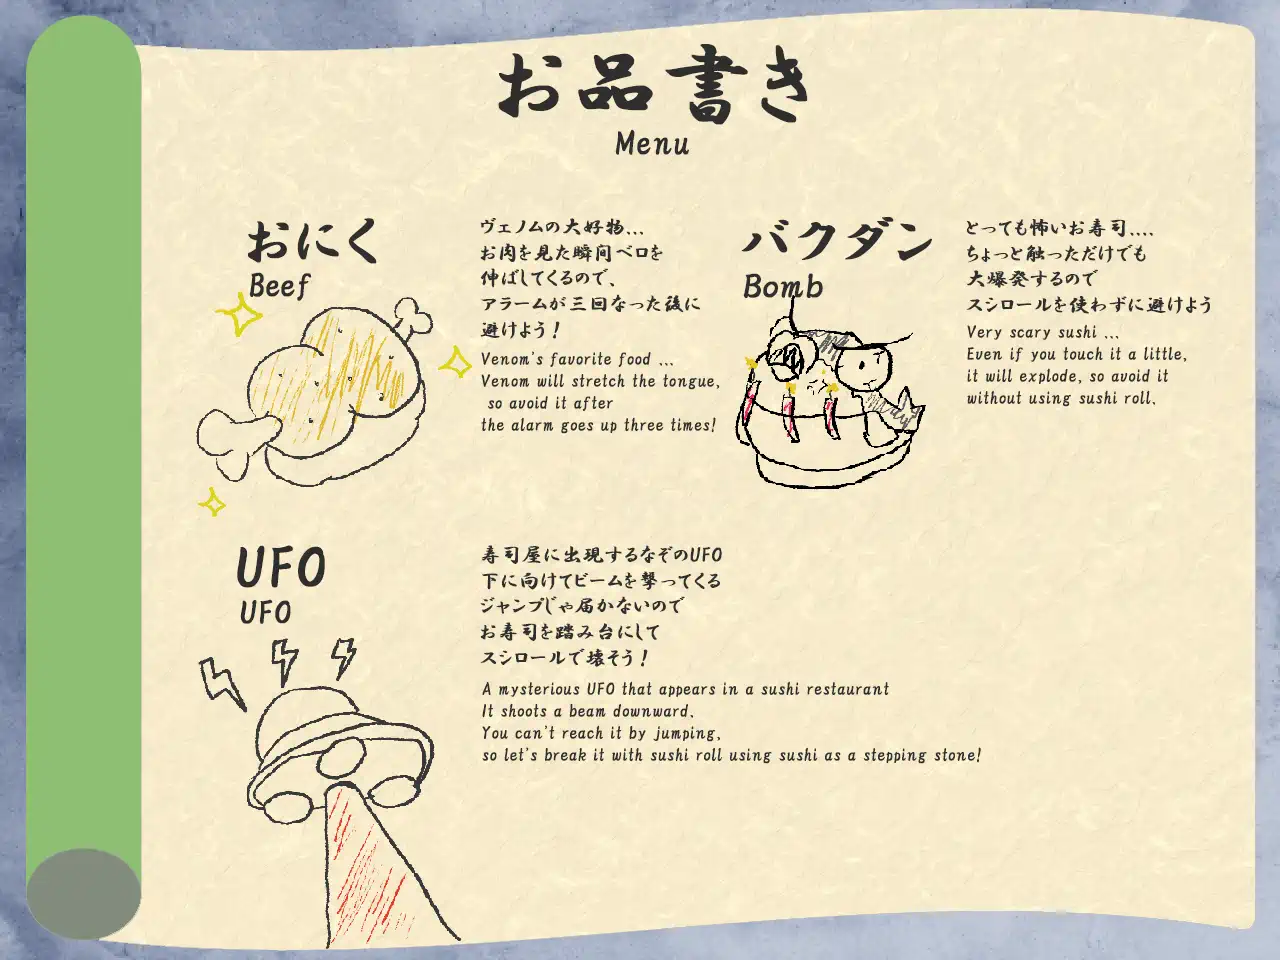 お品書き
Menu
おにく
Beef
ヴェノムの大好物...
お肉を見た瞬間ベロを
伸ばしてくるので、
アラームが三回なった後に
避けよう!
Venom's favorite food ...
Venom will stretch the tongue,
so avoid it after
the alarm goes up three times!
バクダン
Bomb
とっても怖いお寿司....
ちょっと触っただけでも
大爆発するので
スシロールを使わずに避けよう
Very scary sushi ...
Even if you touch it a little,
it will explode, so avoid it
without using sushi roll.
UFO
UFO
寿司屋に出現するなぞのUFO
下に向けてビームを撃ってくる
ジャンプじゃ届かないので
お寿司を踏み台にして
スシロールで壊そう!
A mysterious UFO that appears in a sushi restaurant
It shoots a beam downward.
You can't reach it by jumping,
so let's break it with sushi roll using sushi as a stepping stone!